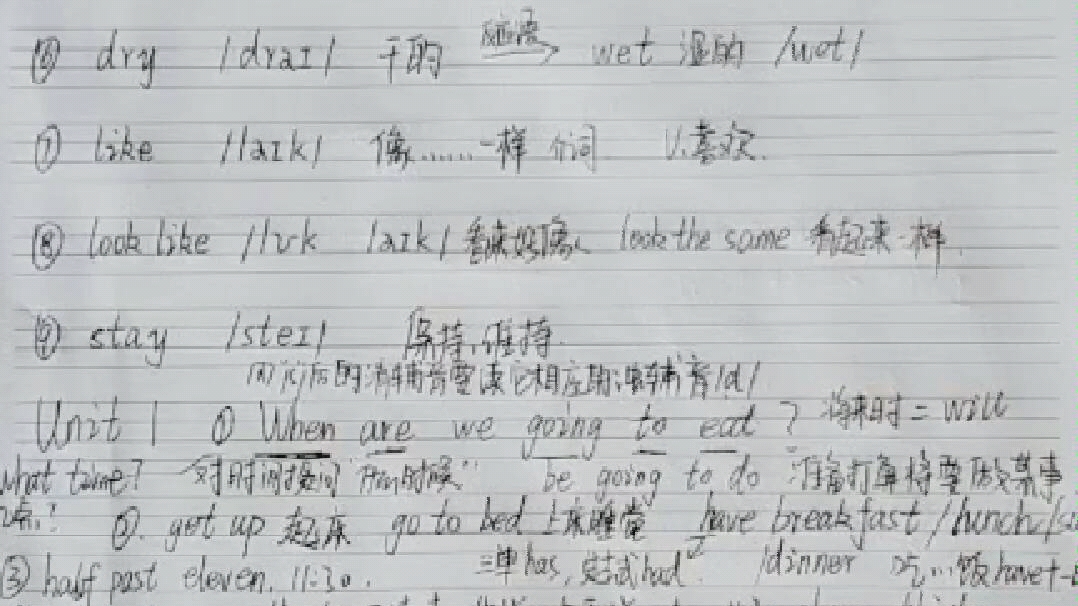 ⑥ dry /draɪ/ 干的 反义词 wet 湿的 /wet/
⑦ like /laɪk/ 像……一样 介词 V.喜欢.
⑧ look like /lʊk laɪk/ 看来好像 look the same 看起来一样.
⑨ stay /steɪ/ 保持,维持.
/s/后的清辅音要读它相应的浊辅音/d/
Unit 1 ① When are we going to eat? 将来时=will
what time? 对时间提问 "什么时候" be going to do 准备打算将要做某事
点? ②. get up 起床 go to bed 上床睡觉 have breakfast/lunch/
③ half past eleven. 11:30. 三单has, 过去式had /dinner 吃…饭 have+